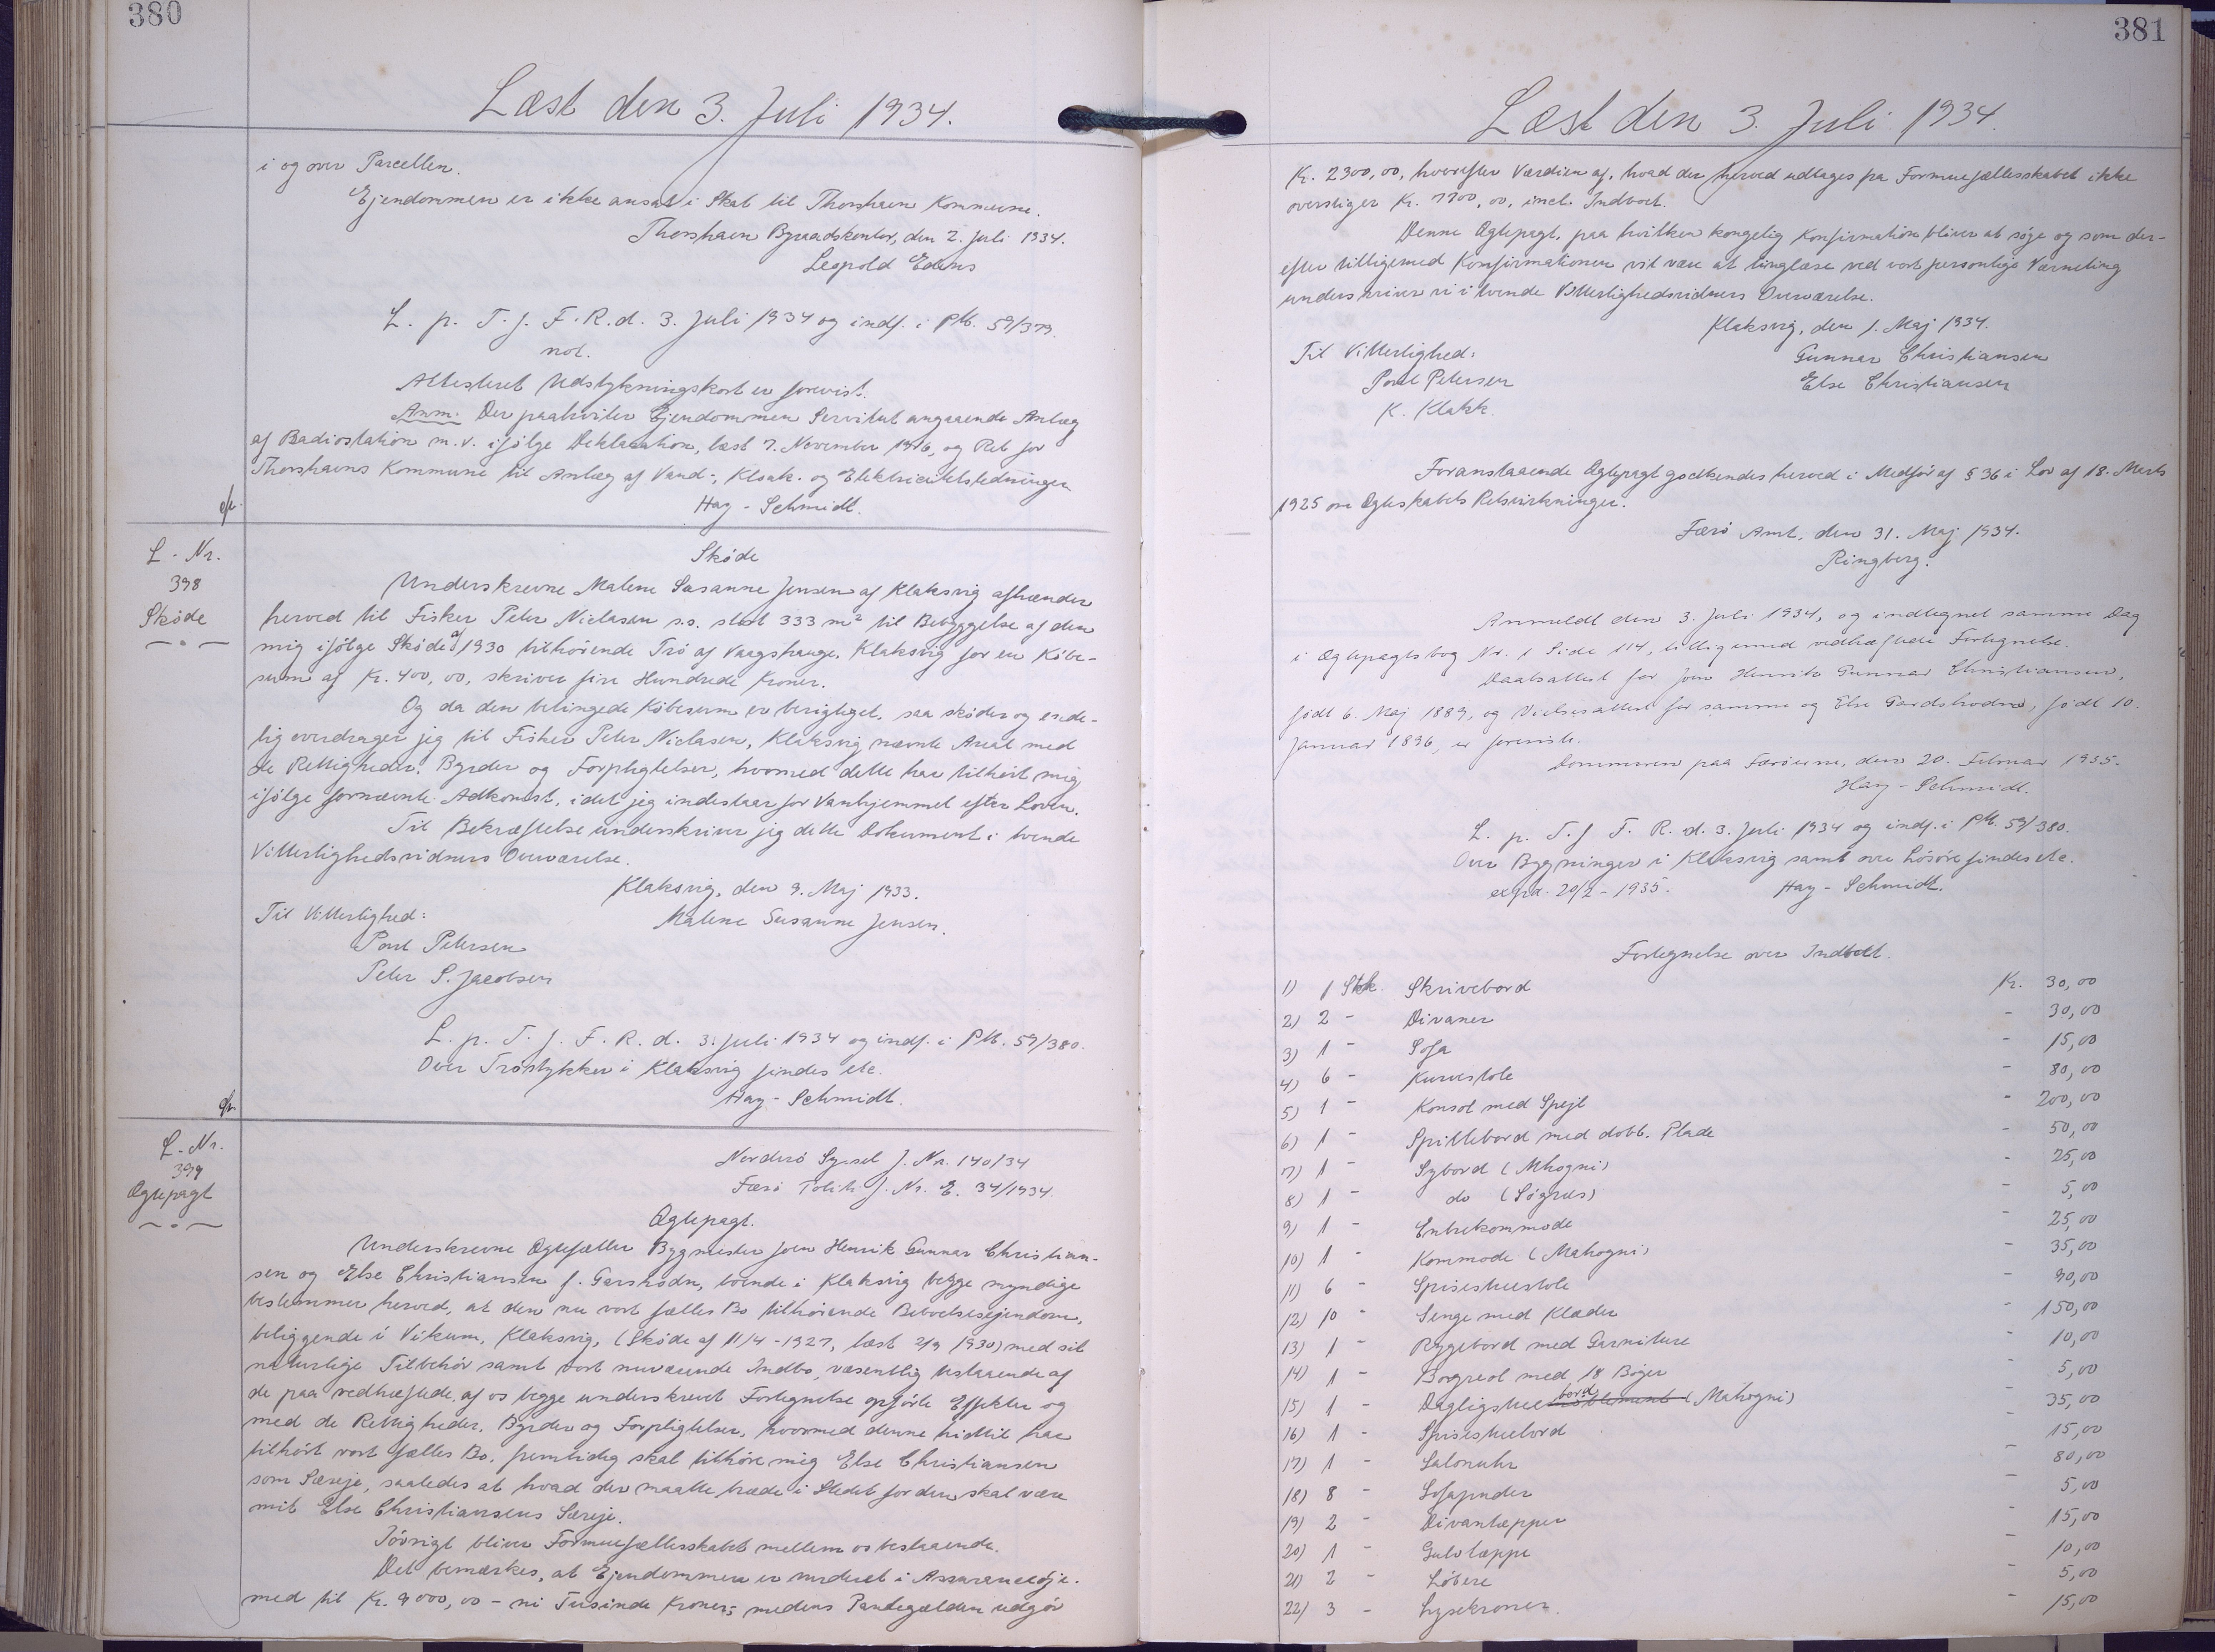 380
Læst den 3. Juli 1934.
i og over Parcellen.
Ejendommen er ikke ansat i Skat til Thorshavn Kommune.
Thorshavn Byraadskontor, den 2. Juli 1934.
Leopold
L. p. T. f. F. R. d. 3. Juli 1934 og indf. i PM. 59/379.
not.
Attesteret Udstykningskort er forevist.
Anm. Der paahviler Ejendommen Servitut angaaende Anlæg
af Radiostation m.v. ifølge Deklaration, læst 7. November 1916, og Ret for
Thorshavns Kommune til Anlæg af Vand-, Kloak- og Elektricitetsledninger
Hay-Schmidt.
L-Nr.
398
Skøde
Skøde
Underskrevne Malene Susanne Jensen af Klaksvig afhænder
herved til Fisker Peter Niclasen s.s. stet 333 m² til Bebyggelse af den
mig ifølge Skøde af 1930 tilhørende Trø af Vaagshauge, Klaksvig for en Købe-
sum af Kr. 400,00, skriver fire Hundrede Kroner.
Og da den betingede Købesum er berigtiget, saa skøder og ende-
lig overdrager jeg til Fisker Peter Niclasen, Klaksvig nævnte Areal med
de Rettigheder, Byrder og Forpligtelser, hvormed dette har tilhørt mig
ifølge fornævnte Adkomst, idet jeg indestaar for Vanhjemmel efter Loven.
Til Bekræftelse underskriver jeg dette Dokument i tvende
Vitterlighedsvidners Overværelse.
Klaksvig, den 9. Maj 1933.
Til Vitterlighed:
Malene Susanne Jensen.
Poul Petersen
Peter S. Jacobsen
L. p. T. f. F. R. d. 3. Juli 1934 og indf. i PM. 59/380.
Over Trøstykker i Klaksvig findes etc.
Hay-Schmidt.
L-Nr.
399
Ægtepagt
Norderø Syssel J. Nr. 140/34
Færø Politi J. Nr. E. 34/1934.
Ægtepagt.
Underskrevne Ægtefæller Bygmester Joen Henrik Gunnar Christian-
sen og Else Christiansen f. Garshodn, boende i Klaksvig begge myndige
bestemmer herved, at den nu vort fælles Bo tilhørende Beboelsesejendom,
beliggende i Vikum, Klaksvig, (Skøde af 11/4-1927, læst 2/9 1930) med sit
naturlige Tilbehør samt vort nuværende Indbo, væsentlig bestaaende af
de paa vedhæftede, af os begge underskrevet Fortegnelse opførte Effekter og
med de Rettigheder, Byrder og Forpligtelser, hvormed denne hidtil har
tilhørt vort fælles Bo, fremtidig skal tilhøre mig Else Christiansen
som Særeje, saaledes at hvad der maatte træde i Stedet for den skal være
mit Else Christiansens Særeje.
Iøvrigt bliver Formuefællesskabet mellem os bestaaende.
Det bemærkes, at Ejendommen er vurderet i Assuranceøje-
med til Kr. 9000,00 - ni Tusinde Kroner; medens Pantegælden udgør
381
Læst den 3. Juli 1934.
Kr. 2300,00, hvorefter Værdien af, hvad der herved udtages fra Formuefællesskabet ikke
overstiger Kr. 7700,00, incl. Indboet.
Denne Ægtepagt, paa hvilken kongelig Konfirmation bliver at søge og som der-
efter tilligemed Konfirmationen vil være at tinglæse ved vort personlige Værneting
underskriver vi i tvende Vitterlighedsvidners Overværelse.
Klaksvig, den 1. Maj 1934.
Til Vitterlighed:
Gunnar Christiansen
Poul Petersen
Else Christiansen
K. Klakk.
Foranstaaende Ægtepagt godkendes herved i Medfør af § 36 i Lov af 18. Marts
1925 om Ægteskabets Retsvirkninger.
Færø Amt, den 31. Maj 1934.
Ringberg.
Anmeldt den 3. Juli 1934, og indtegnet samme Dag
i Ægtepagtsbog Nr. 1 Side 114, tilligemed vedhæftede Fortegnelse.
Daabsattest for Joen Henrik Gunnar Christiansen,
født 6. Maj 1889, og Vielsesattest for samme og Else Gardshodn, født 10.
Januar 1896, er forevist.
Dommeren paa Færøerne, den 20. Februar 1935.
Hay-Schmidt.
L. p. T. f. F. R. d. 3. Juli 1934 og indf. i PM. 59/380.
Over Bygninger i Klaksvig samt over Løsøre findes etc.
exped. 20/2-1935. Hay-Schmidt.
Fortegnelse over Indboet.
1) 1 Stk. Skrivebord Kr. 30,00
2) 2 - Divaner - 30,00
3) 1 - Sofa - 15,00
4) 6 - Kurvestole - 80,00
5) 1 - Konsol med Spejl - 200,00
6) 1 - Spillebord med dobb. Plade - 50,00
7) 1 - Sybord (Mhogni) - 25,00
8) 1 - do (Søgræs) - 5,00
9) 1 - Entrekommode - 25,00
10) 1 - Kommode (Mahogni) - 35,00
11) 6 - Spisestuestole - 90,00
12) 10 - Senge med Klæder - 150,00
13) 1 - Rygebord med Garniture - 10,00
14) 1 - Borgreol med 18 Bøger - 5,00
15) 1 - Dagligstuebord (Mahogni) - 35,00
16) 1 - Spisestuebord - 15,00
17) 1 - Salonuhr - 80,00
18) 8 - Sofapuder - 5,00
19) 2 - Divantæpper - 15,00
20) 1 - Gulvtæppe - 10,00
21) 2 - Løbere - 5,00
22) 3 - Lysekroner. - 15,00